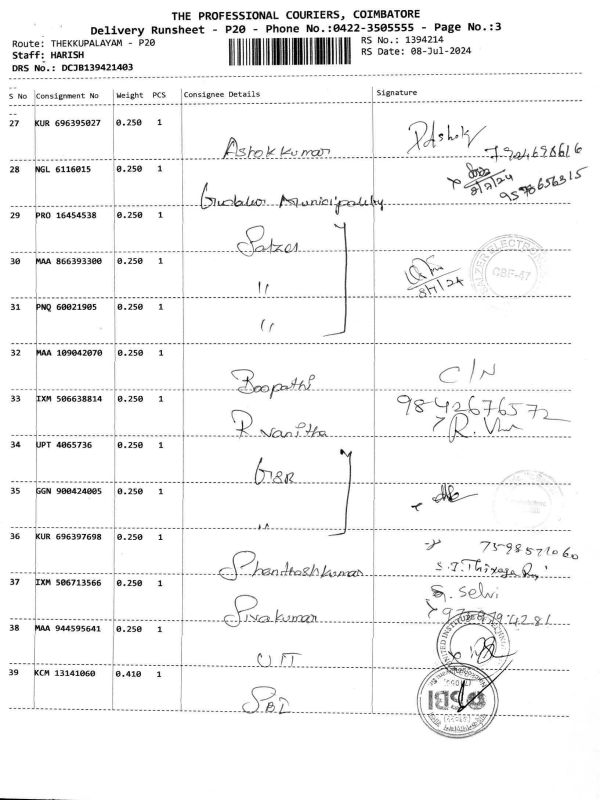 THE PROFESSIONAL COURIERS, COIMBATORE
Delivery Runsheet - P20 - Phone No.:0422-3505555 - Page No.:3
Route: THEKKUPALAYAM - P20
RS No.: 1394214
Staff: HARISH
RS Date: 08-Jul-2024
DRS No.: DCJB139421403
S No Consignment No Weight PCS Consignee Details Signature
27 KUR 696395027 0.250 1
Ashokkumar P.Ashok
28 NGL 6116015 0.250 1
8/7/24
9578656315
Municipality
29 PRO 16454538 0.250 1
Salzer
30 MAA 866393300 0.250 1
SALZER ELECTRONICS
CBE-47
8/7/24
"
31 PNQ 60021905 0.250 1
"
32 MAA 109042070 0.250 1
C/N
Boopathi
33 IXM 506638814 0.250 1
9842676572
R vanitha
34 UPT 4065736 0.250 1
G&R
35 GGN 900424005 0.250 1
"
36 KUR 696397698 0.250 1
7598521060
Shanthoshkumar
37 IXM 506713566 0.250 1
Selvi
Sivakumar
38 MAA 944595641 0.250 1
UIT
39 KCM 13141060 0.410 1
SBI
SBI